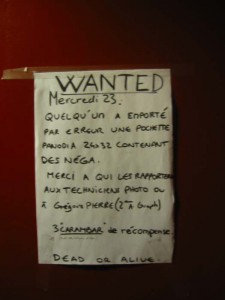 WANTED
Mercredi 23:
QUELQU'UN A EMPORTÉ
PAR ERREUR UNE POCHETTE
PANODIA 24x32 CONTENANT
DES NÉGA.
MERCI A QUI LES RAPPORTERA
AUX TECHNICIENS PHOTO OU
à Grégoire PIERRE (2
3 "CARAMBAR" de récompense.
DEAD OR ALIVE.